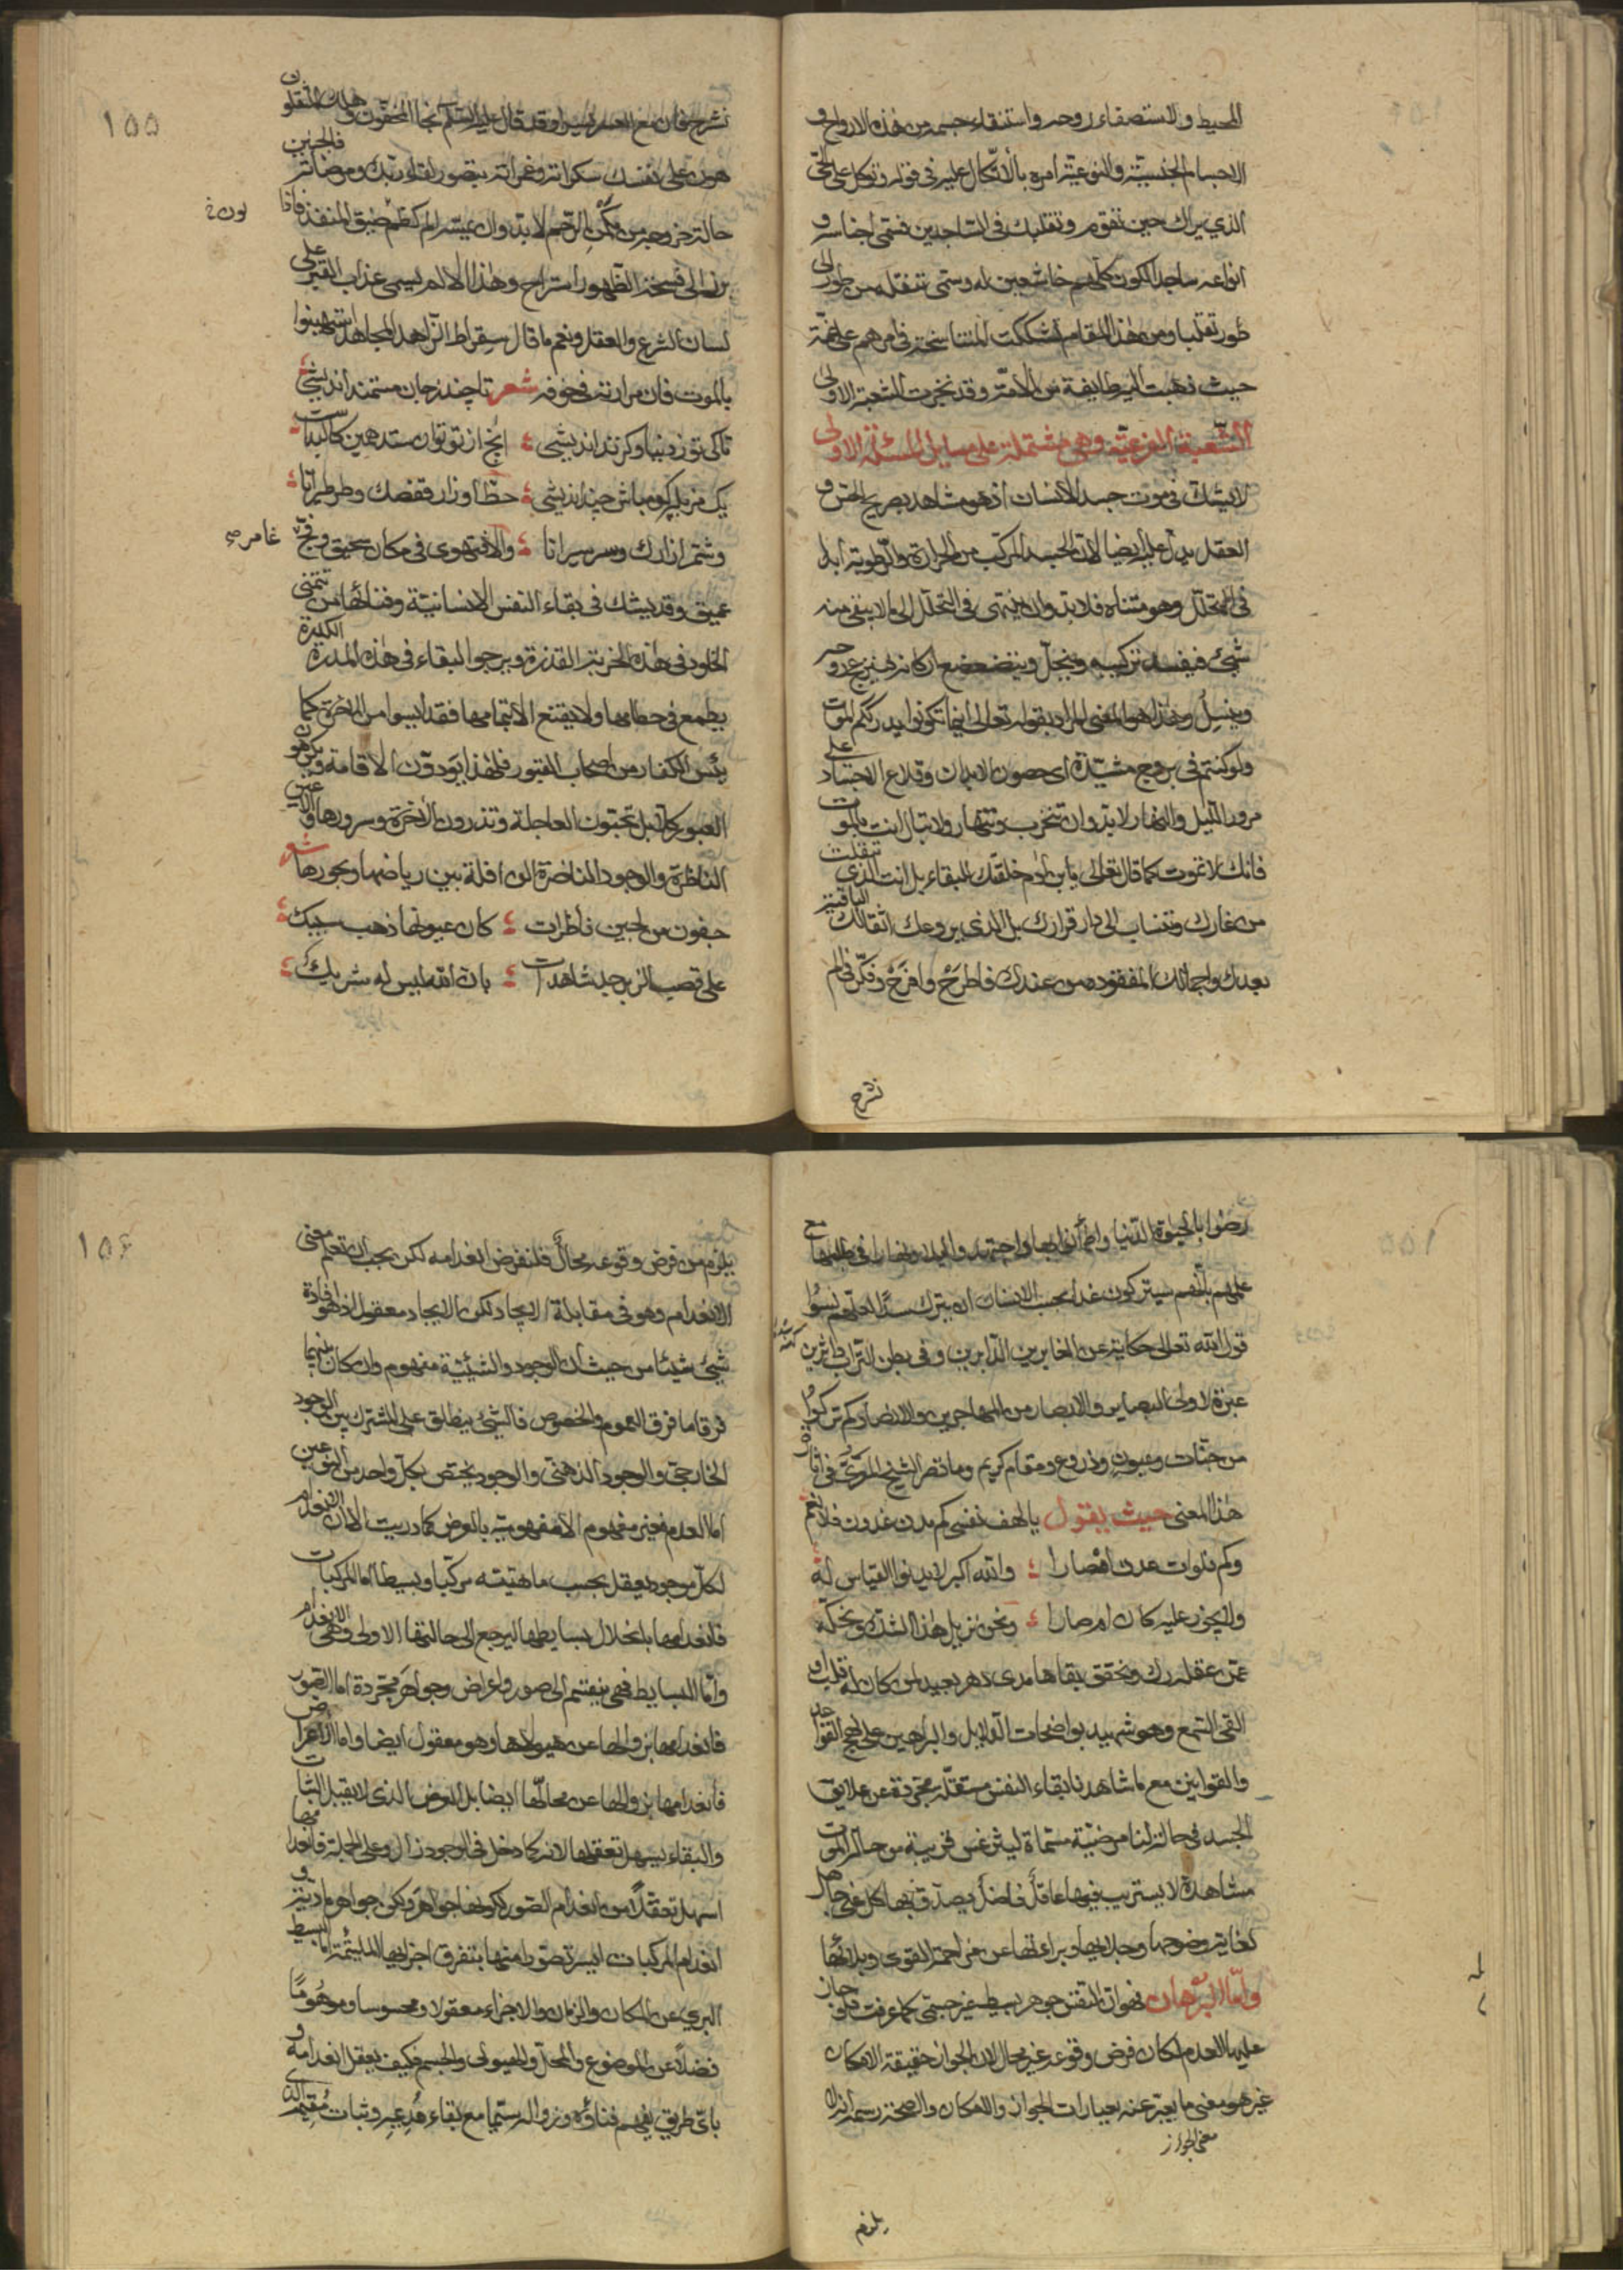 المحيط والاستصفاء روحه واستنقاء جسمه من هذه الارواح و
الاجسام الجنسيّة والنوعيّة امره بالاتّكال عليه في قوله وتوكل على الحي
الذي يراك حين تقوم وتقلبك في الساجدين فسمّى اجناسه و
انواعه ساجدا لكون كلهم خاشعين له وسمّى تنقله من طور الى
طور تقلبا ومن هذا المقام تشككت التناسخية في امرهم على غمّة
حيث ذهبت اليه طايفة من الامّة وقد نجزت الشعبة الاولى
الشّعبة الفرعيّة وهي مشتملة على مسايل المسئلة الاولى
لا يشك في موت جسد الانسان اذ هو مشاهد بصريح الحسّ و
العقل يدل عليه ايضا لان الجسد المركب من الحرارة والرّطوبة ابدا
في التحلّل وهو متناه فلا بد وان ينتهي في التحلّل الى ما لا يبقى منه
شيئ فيفسد تركيبه وينحلّ ويتضعضع اركانه لينزعج روحه
وينسلّ وهذا هو المعنى المراد بقوله تعالى اينما تكونوا يدرككم الموت
ولو كنتم في بروج مشيّدة اى حصون الابدان وقلاع الاجساد على
مرور الليل والنهار لا بد وان تتخرب وتنهار ولا تبال انت بالموت
فانك لا تموت كما قال تعالى يا بن آدم خلقتك للبقاء بل انت الذي تنفلت
من غارك وتنساب الى دار قرارك بل الذي يروعك اثقالك الباقية
بعدك واحمالك المفقوده من عندك فاطرح وافرح وفكّر في الم
نشرح
١٥٥
نشرح فان مع العسر يسرا وقد قال عليه السّلم نجا المخفّون وهلك المثقلون
هون على نفسك سكراته وغمراته بتصور لقاء ربّك ومرضاته فالجنين
حالة خروجه من مكمن الرّحم لا بد وان يمسّه الم كظم ضيق المنفذ فاذا
برز الى فسحة الظهور استراح وهذا الالم يسمى عذاب القبر على
لسان الشرع والعقل ونعم ما قال سقراط الزاهد المجاهد استهينوا
بالموت فان مرارته في خوفه شعر تا چند ز جان مستمند انديشى
تا كى تو ز دنيا وكزند انديشى انچ از تو توان ستد همين كالبد است
يك مزبله كو مباش چند انديشى حظّ اوزار قفصك وطر طيرانا
وشمّر ازارك وسر سيرانا والا فتهوى في مكان سحيق وفجّ
غامر صح
عميق وقد يشك في بقاء النفس الانسانيّة وفنائها من تتمنى
الخلود في هذه الخربة القذرة ويرجو البقاء في هذه المدرة الكدرة
يطمع في حطامها ولا يقنع الا بتمامها فقد ايسوا من الاخرة كما
يئس الكفار من اصحاب القبور فلهذا يودّون الاقامة ويكرهون
العبور كلا بل تحبّون العاجلة وتذرون الاخرة وسرورها والاعين
الناظرة والوجوه الناضرة الرافلة بين رياضها وبحورها شعر
جفون من لجين فاظرات كان عيونها ذهب سبيك
على قصب الزبرجد شاهدات بان الله ليس له شريك
رضوا بالحيوة الدّنيا واطمأنّوا بها واجتهدوا ليلا ونهارا في طلبها مع
علمهم بانّهم سيتركون غدا ايحسب الانسان ان يترك سدًا لعلّهم نسوا
قول الله تعالى حكاية عن الغابرين الدّابرين وفي بطن التراب داثرين
عبرة لاولى البصاير والابصار من المهاجرين والانصار كم تركوا
من جنّات وعيون وزروع ومقام كريم وما نصر الشيخ المعرّي في آثار
هذا المعنى حيث يقول يا لهف نفسي كم مدن غدون فلا ثم
وكم فلوات عدن امصارا والله اكبر لا يدنوا القياس له
ولا يجوز عليه كان او صارا ونحن نزيل هذا الشك ونحكّه
عن عقله رك ونحقق بقاها مدى دهر بعيد لمن كان له قلب او
القى السّمع وهو شهيد بواضحات الدّلايل والبراهين على نهج القواعد
والقوانين مع ما شاهدنا بقاء النفس مستقلّة مجرّدة عن علايق
الجسد في حالة لنا مرضيّة مسماة ليثرغس قريبة من حالة الموت
مشاهدة لا يستريب فيها عاقل فاضل ويصدّق بها كل غبى جاهل
لغاية وضوحها وجلايها وبراءتها عن مزاحمة القوى وبلائها
وامّا البرهان فهو ان النفس جوهر بسيط غير جسمي كما عرفت فلو جاز
عليه العدم لكان فرض وقوعه غير محال لان الجواز حقيقة الامكان
غير هو معنى ما يعبّر عنه بعبارات الجواز والامكان والصحّة رسمه انه
معنى الجواز
يلزم
١٥٦
يلزم من فرض وقوعه محالّ فلنفرض انعدامه لكن يجب ان تعلم معنى
الانعدام وهو في مقابلة الايجاد لكن الايجاد معقول اذ هو افادة
شيئ شيئا من حيث ان الوجود والشيئيّة مفهوم وان كان بينهما
فرقا ما فرق العموم والخصوص فالشيئ يطلق على المشترك بين الوجود
الخارجيّ والوجود الذهني والوجود يختص بكلّ واحد من النوعين
اما العدم فغير مفهوم الا مفهوميته بالعرض كما دريت الا ان انعدام
لكلّ موجود يعقل بحسب ماهيّته مركّبا وبسيطا اما المركبات
فانعدامها بانحلال بسايطها ليرجع الى حالتها الاولى وهي الانعدام
وامّا البسايط فهي ينقسم الى صور واعراض وجواهر مجرّدة اما الصور
فانعدامها بزوالها عن هيولاها وهو معقول ايضا واما الاعراض
فانعدامها بزوالها عن محالّها ايضا بل العرض الذي لا يقبل الثبات
والبقاء يسهل تعقلها لانه كما دخل في الوجود زال وعلى الجملة فانعدامها
اسهل تعقلا من انعدام الصور لكونها جواهر ولكن جواهر مادية و
انعدام المركبات ايسر تصورا منها بتفرق اجزايها الملتئمة اما البسيط
البري عن المكان والزمان والاجزاء معقولا ومحسوسا وموهوما
فضلا عن الموضوع والمحلّ والهيولى والجسم فكيف يعقل انعدامه و
باىّ طريق يفهم فناؤه وزواله سيّما مع بقاء مُدعيه وثبات مُقيمه الذى